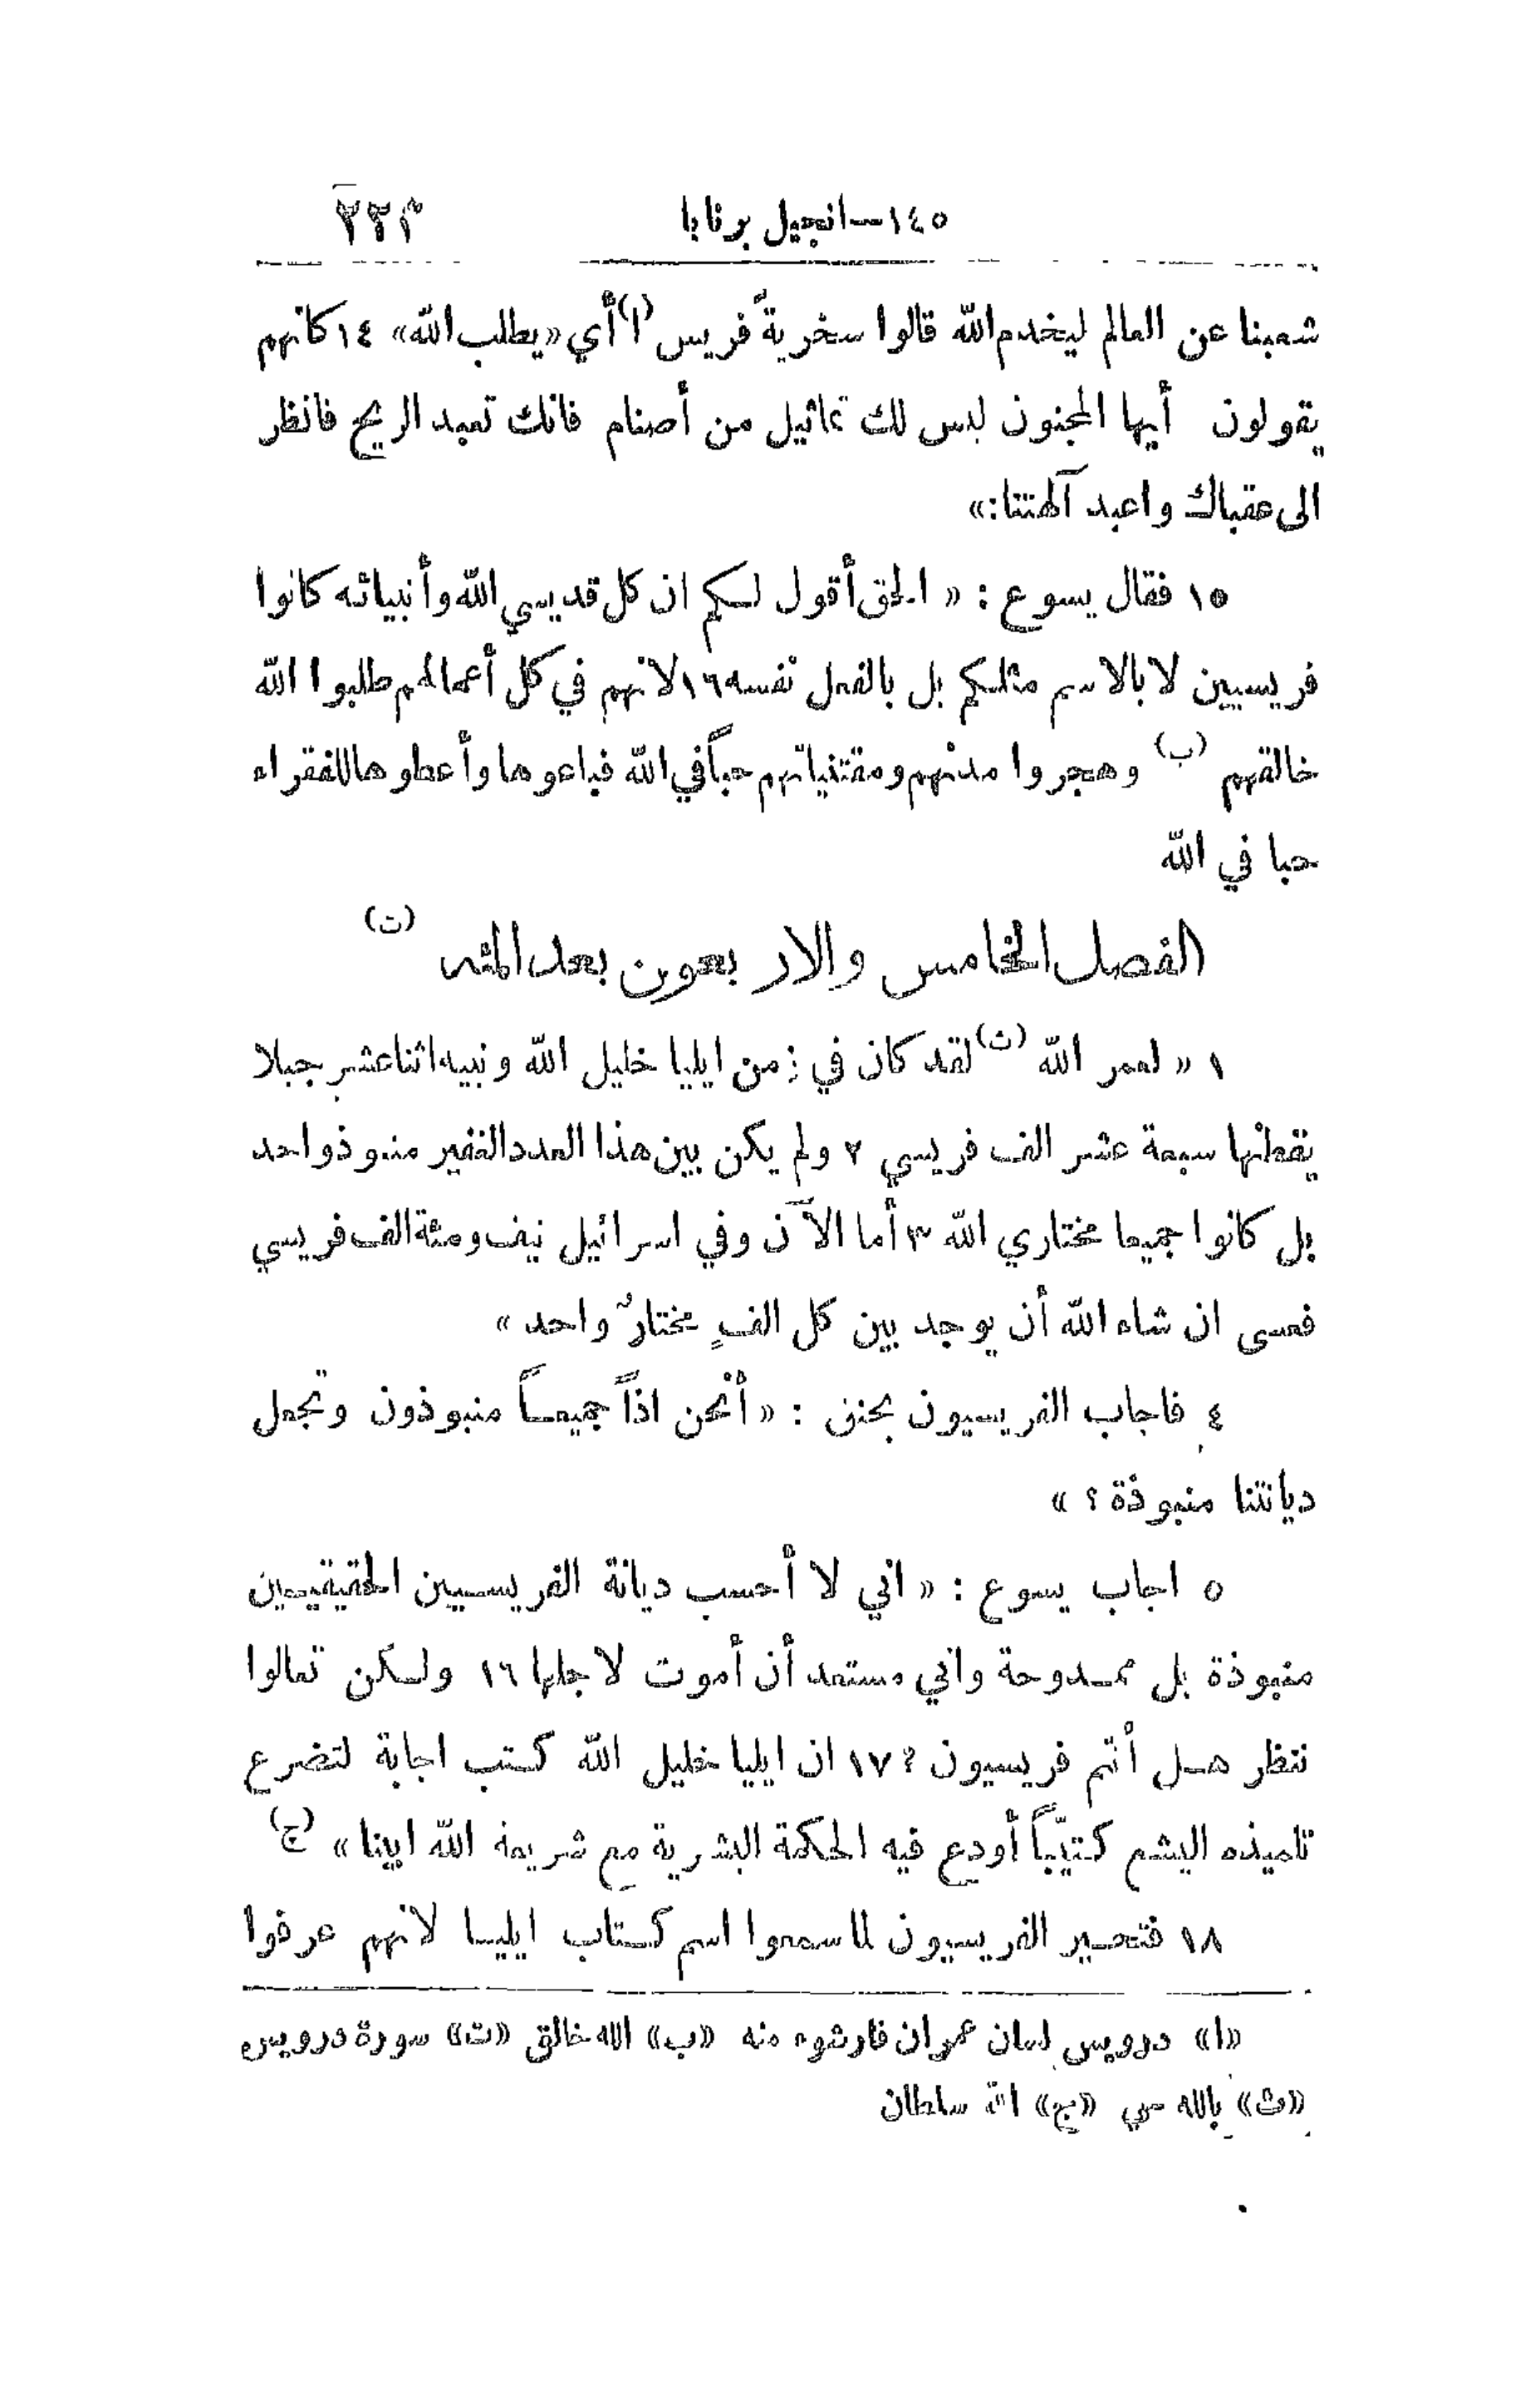 ١٤٥ — انجيل برنابا ٢٢٣
شعبنا عن العالم ليخدم الله قالوا سخريةً فريس (ا) أي «يطلب الله» ١٤ كانهم
يقولون أيها المجنون ليس لك تماثيل من أصنام فانك تعبد الريح فانظر
الى عقباك واعبد آلهتنا:»
١٥ فقال يسوع : « الحق أقول لكم ان كل قديسي الله وأنبيائه كانوا
فريسيين لا بالاسم مثلكم بل بالفعل نفسه ١٦ لانهم في كل أعمالهم طلبوا الله
خالقهم (ب) وهجروا مدنهم ومقتنياتهم حباً في الله فباعوها وأعطوها للفقراء
حبا في الله
الفصل الخامس والاربعون بعد المئه (ت)
١ « لعمر الله (ث) لقد كان في زمن ايليا خليل الله ونبيه اثنا عشر جبلا
يقطنها سبعة عشر الف فريسي ٢ ولم يكن بين هذا العدد الغفير منبوذ واحد
بل كانوا جميعا مختاري الله ٣ أما الآن وفي اسرائيل نيف ومئة الف فريسي
فعسى ان شاء الله أن يوجد بين كل الفٍ مختارٌ واحد »
٤ فاجاب الفريسيون بحنق : « أنحن اذاً جميعاً منبوذون وتجعل
ديانتنا منبوذة ؟ »
٥ اجاب يسوع : « اني لا أحسب ديانة الفريسيين الحقيقيين
منبوذة بل ممدوحة واني مستعد أن أموت لاجلها ١٦ ولكن تعالوا
ننظر هل أنتم فريسيون ؟ ١٧ ان ايليا خليل الله كتب اجابة لتضرع
تلميذه اليشع كتيّباً أودع فيه الحكمة البشرية مع شريعة الله ابينا » (ج)
١٨ فتحير الفريسيون لما سمعوا اسم كتاب ايليا لانهم عرفوا
«ا» درويس لسان عمران فارشوه منه «ب» الله خالق «ت» سورة درويس
«ث» بالله حي «ج» الله سلطان